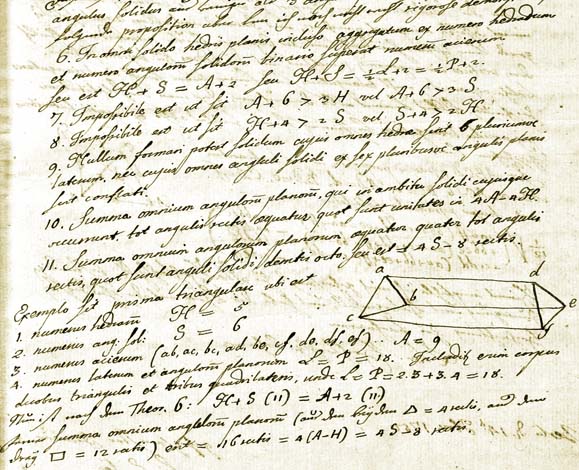 angulus solidus
sequens propositio
6. In omni solido hedris planis incluso aggregatum ex numero hedrarum
et numero angulorum solidorum binario superat numerum acierum
seu est H + S = A + 2 seu H + S = ½L + 2 = ½P + 2.
7. Impossibile est ut sit A + 6 > 3H vel A + 6 > 3S.
8. Impossibile est ut sit H + 4 > 2S vel S + 4 > 2H.
9. Nullum formari potest solidum cujus omnes hedrae sint 6 pluriumve
laterum, nec cujus omnes anguli solidi ex sex pluribusve angulis planis
sint conflati.
10. Summa omnium angulorum planorum, qui in ambitu solidi cujusque
occurrunt, tot angulis rectis aequatur quot sunt unitates in 4A – 4H.
11. Summa omnium angulorum planorum aequatur quater tot angulis
rectis, quot sunt anguli solidi, demtis octo, seu est = 4S – 8 rectis.
Exemplo sit prisma triangulare ubi est
a d b e c f
1. numerus hedrarum H = 5
2. numerus ang. sol: S = 6
3. numerus acierum (ab, ac, bc, ad, be, cf, de, df, ef) .. A = 9
4. numerus laterum et angulorum planorum L = P = 18. Includitur enim corpus
duobus triangulis et tribus quadrilateris, unde L = P = 2.3 + 3.4 = 18.
Nun ist nach dem Theor. 6: H + S (11) = A + 2 (11)
summa omnium angulorum planorum (aus den beyden Δ = 4 rectis, aus den
drey □ = 12 rectis) erit = 16 rectis = 4(A–H) = 4S – 8 rectis.